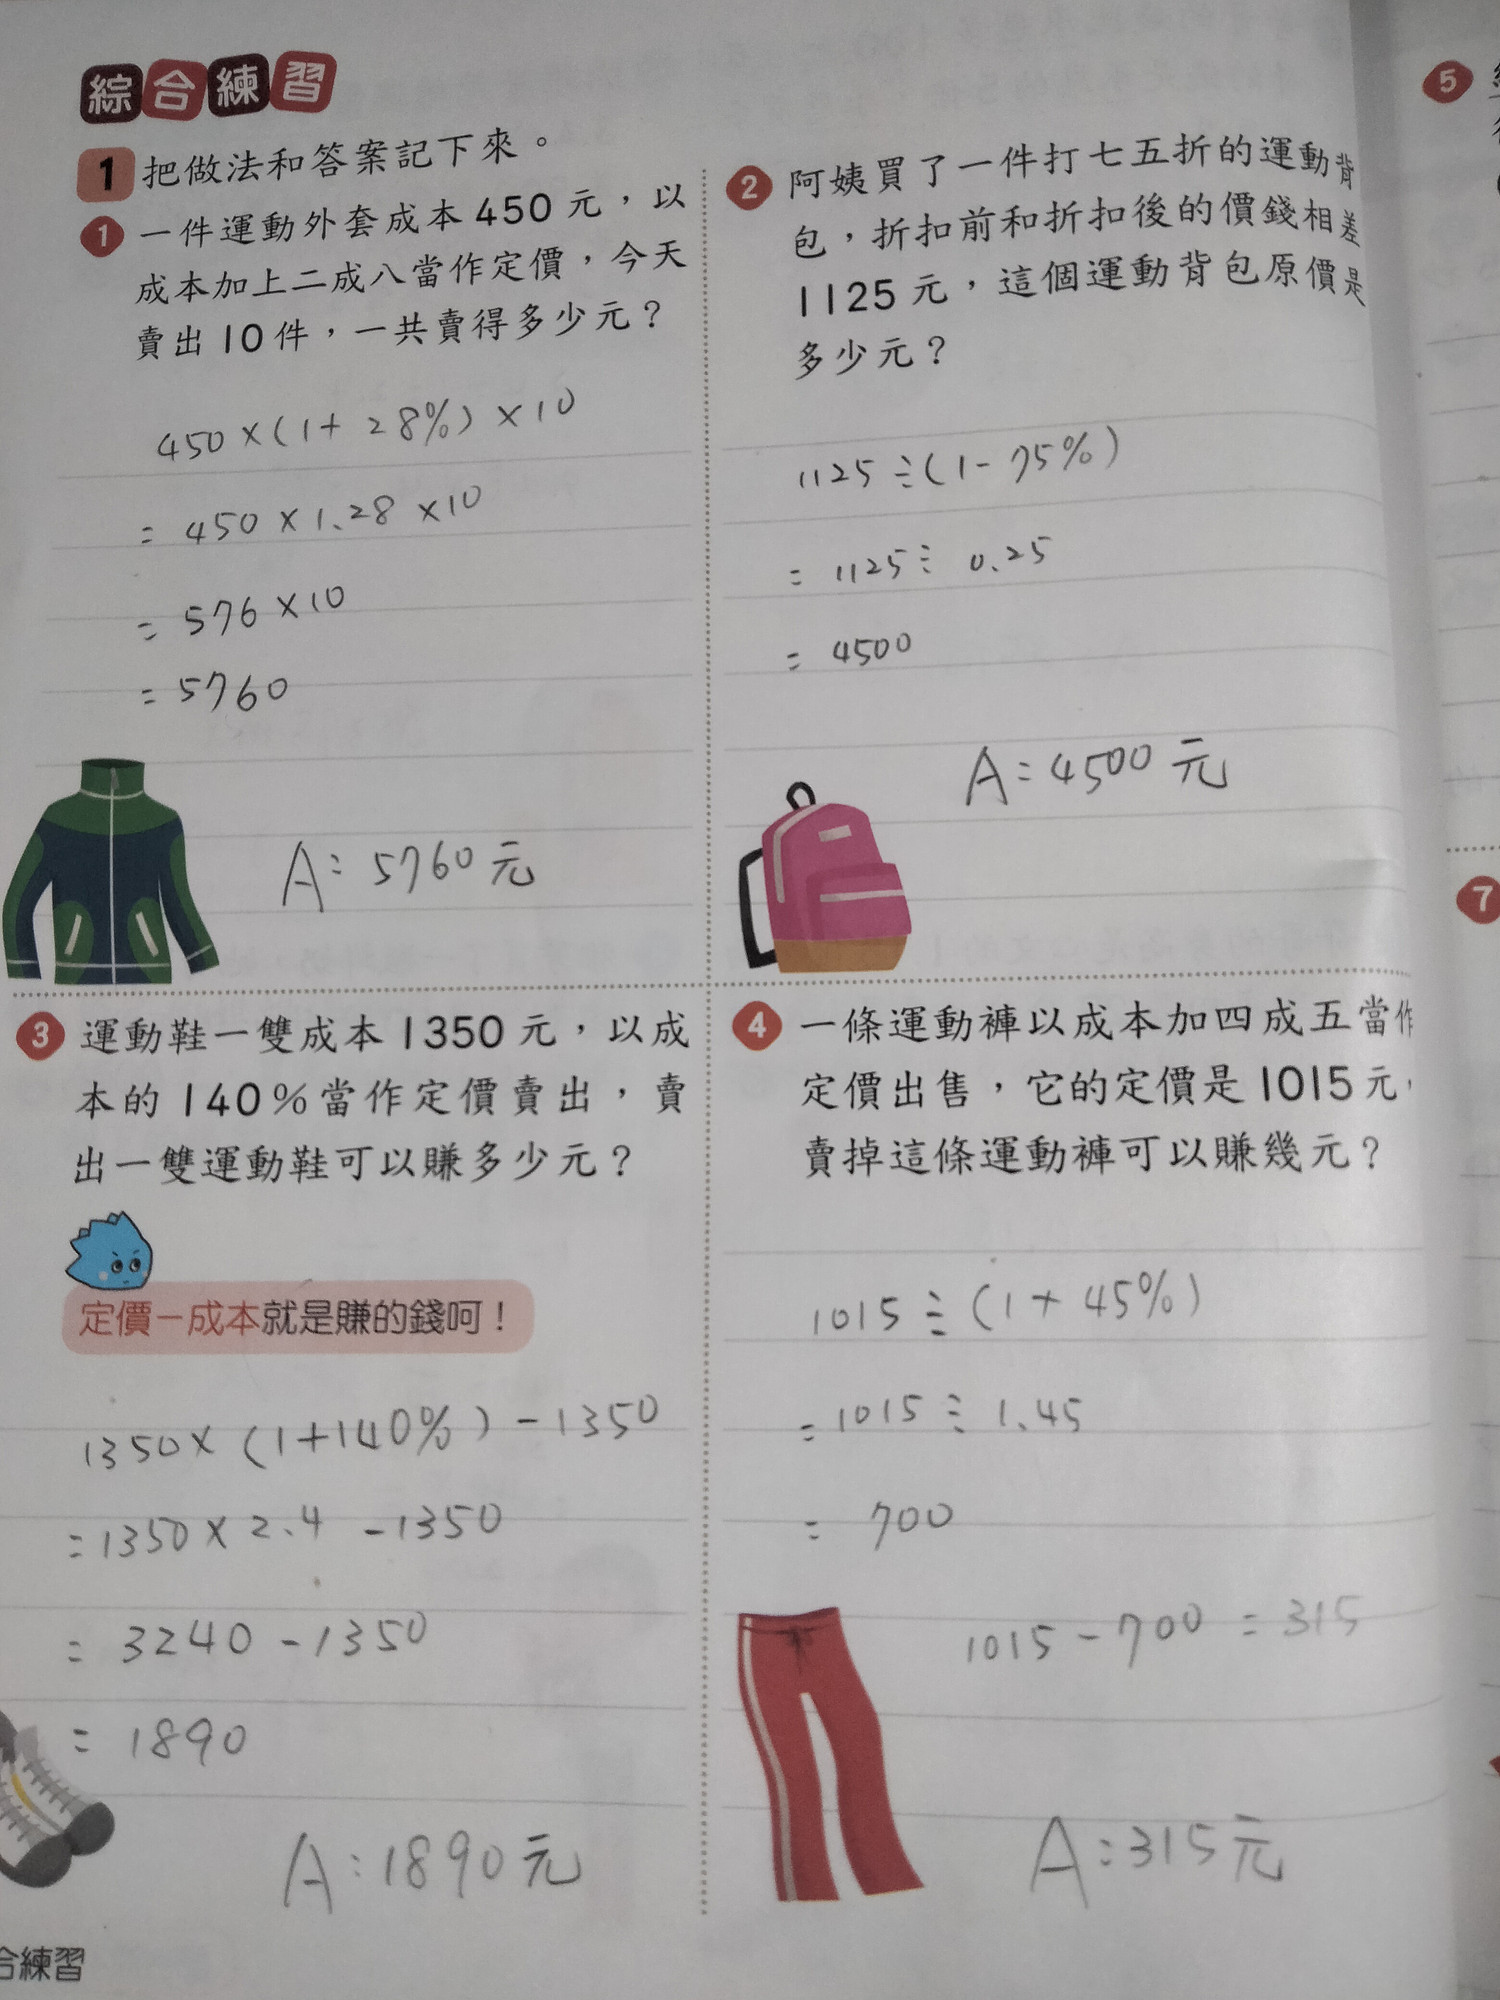 綜合練習
1 把做法和答案記下來。
1 一件運動外套成本450元，以
成本加上二成八當作定價，今天
賣出10件，一共賣得多少元？
450×(1+28%)×10
=450×1.28×10
=576×10
=5760
A:5760元
2 阿姨買了一件打七五折的運動背
包，折扣前和折扣後的價錢相差
1125元，這個運動背包原價是
多少元？
1125÷(1-75%)
=1125÷0.25
=4500
A:4500元
3 運動鞋一雙成本1350元，以成
本的140%當作定價賣出，賣
出一雙運動鞋可以賺多少元？
定價－成本就是賺的錢呵！
1350×(1+140%)-1350
=1350×2.4-1350
=3240-1350
=1890
A:1890元
4 一條運動褲以成本加四成五當作
定價出售，它的定價是1015元，
賣掉這條運動褲可以賺幾元？
1015÷(1+45%)
=1015÷1.45
=700
1015-700=315
A:315元
合練習
5
7